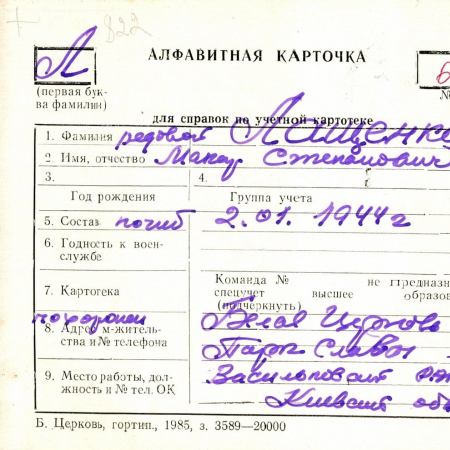 822
АЛФАВИТНАЯ КАРТОЧКА
Л
(первая бук-
ва фамилии)
№
для справок по учетной картотеке
1. Фамилия рядовой Лященко
2. Имя, отчество Макар Степанович
3. 4.
Год рождения Группа учета
5. Состав погиб 2.01.1944 г
6. Годность к воен-
службе
Команда № не предназн
7. Картотека спецучет высшее образов
(подчеркнуть)
похоронен Белая Церковь
8. Адрес м-житель-
ства и № телефона Парк Славы
9. Место работы, дол-
жность и № тел. ОК
Киевская об
Б. Церковь, гортип., 1985, з. 3589—20000